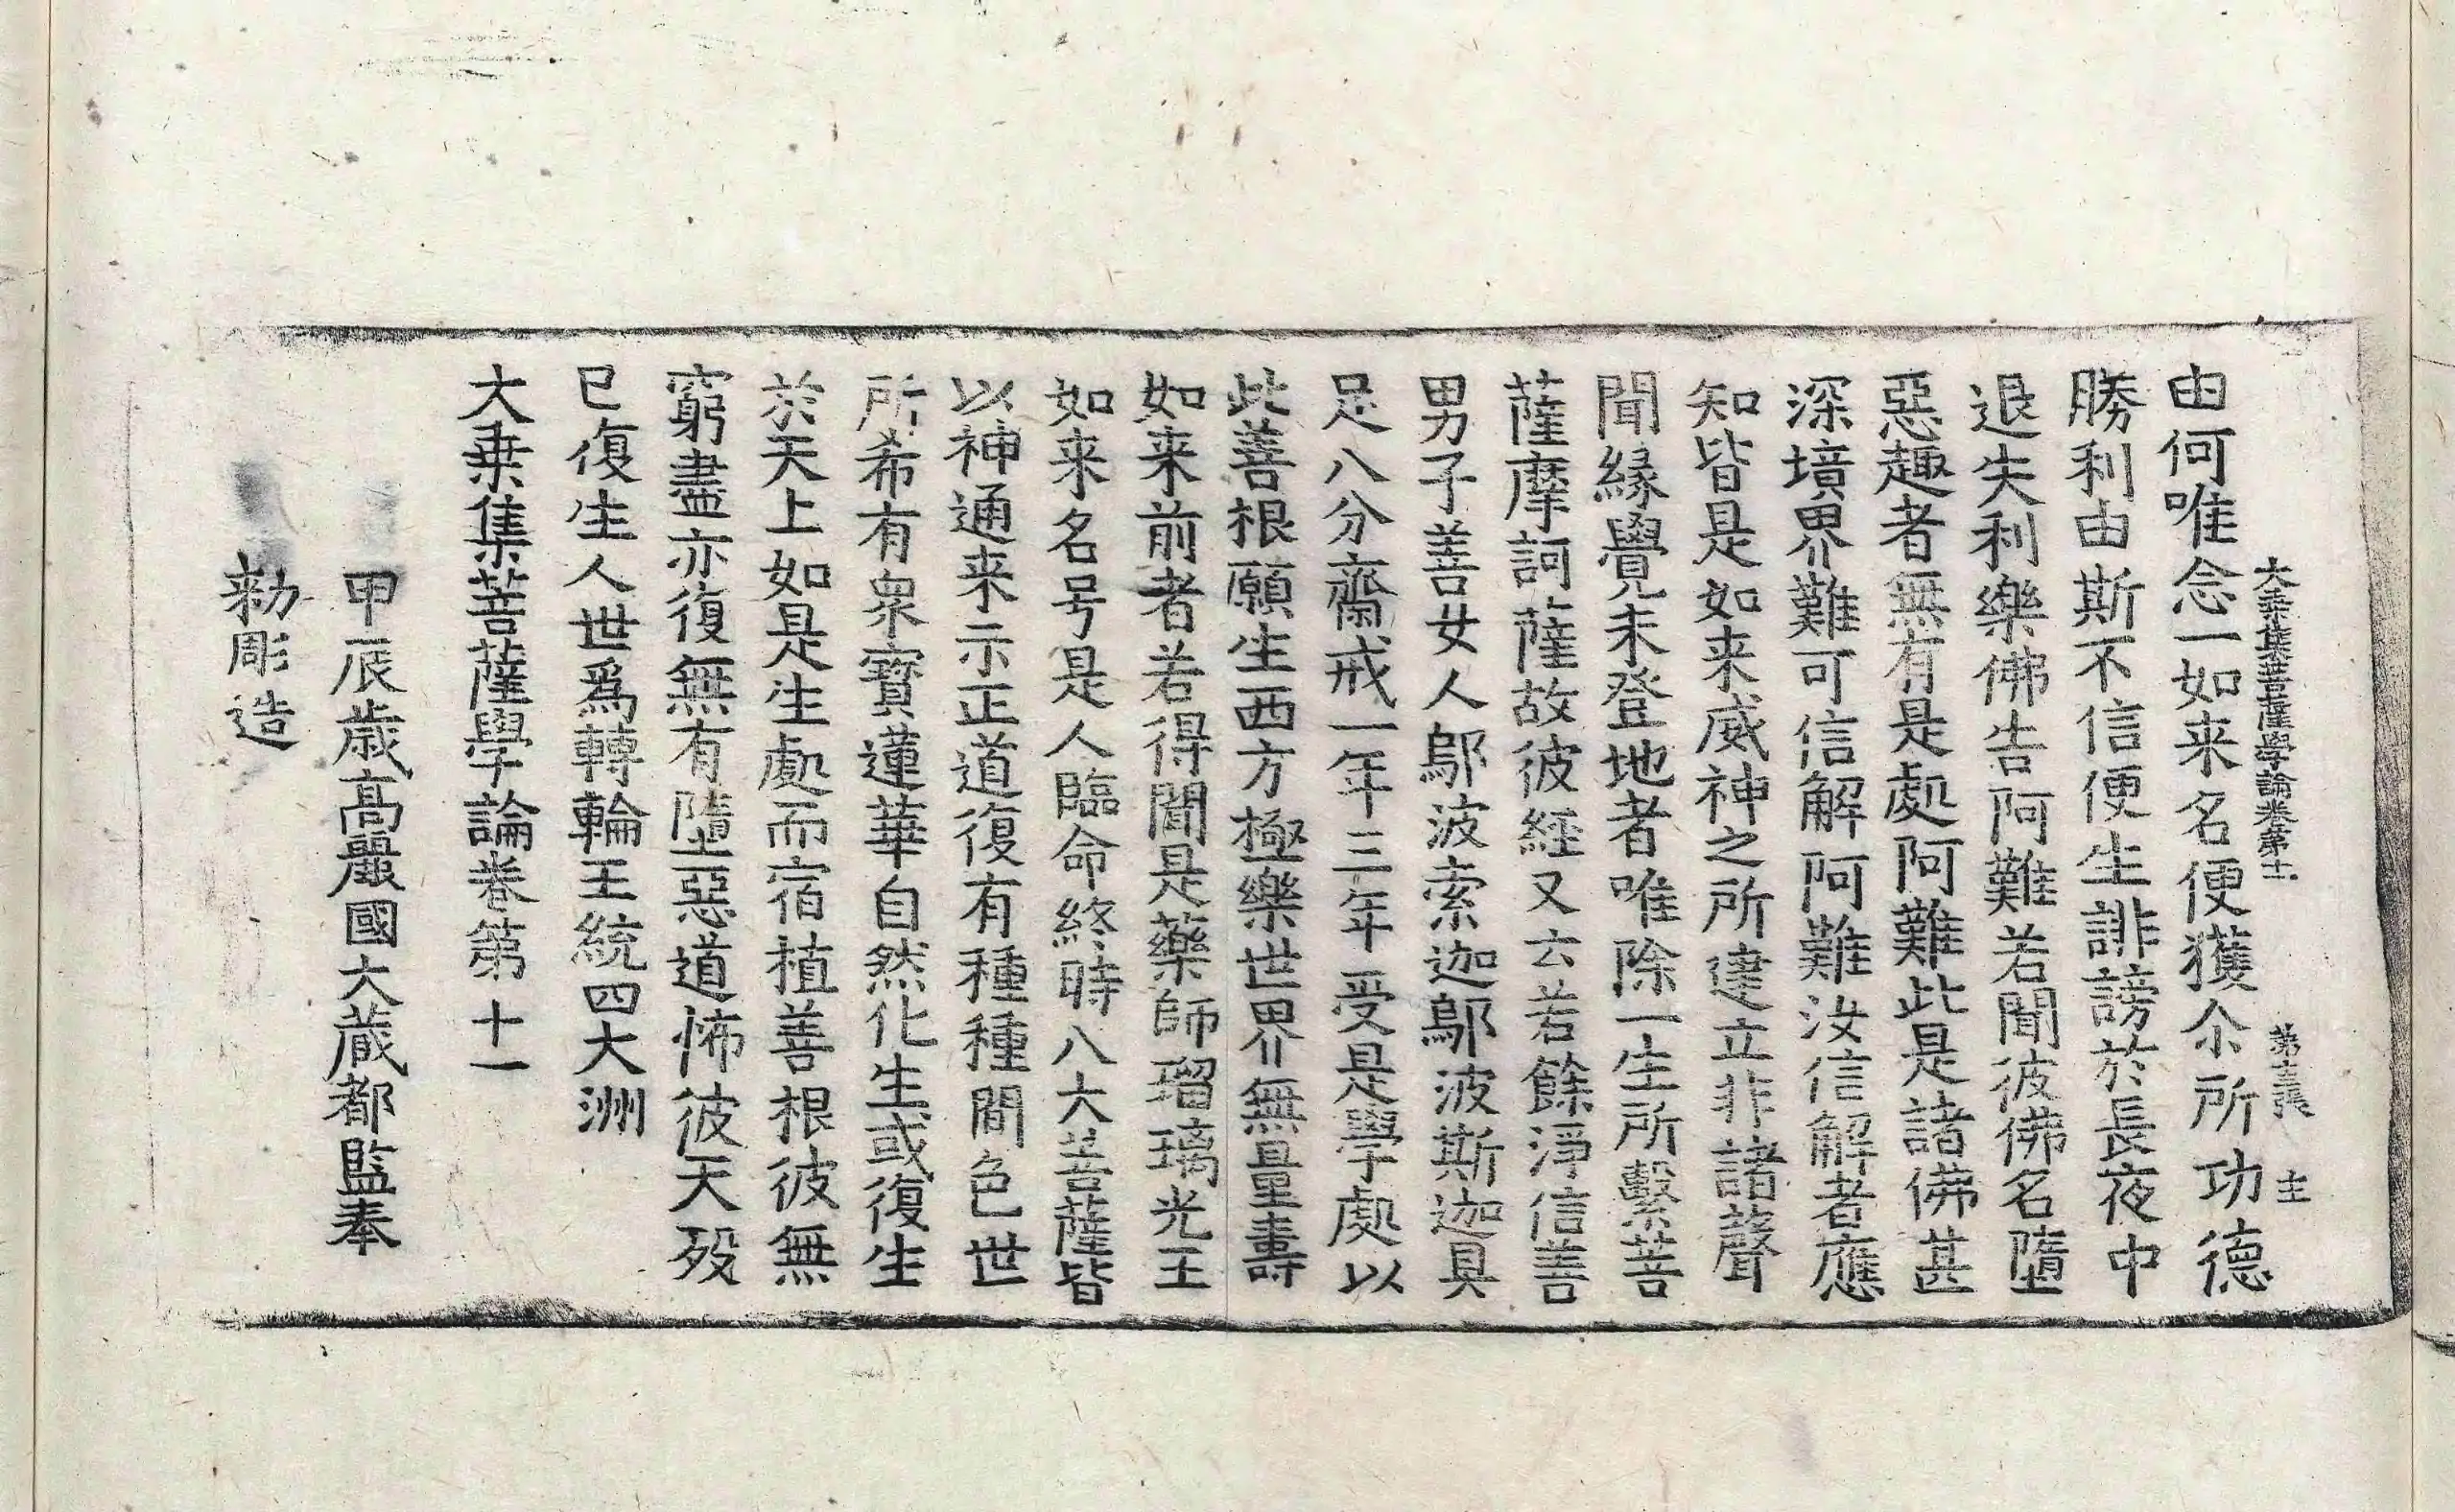 大乗集菩薩學論卷第十一　第十三張　主
由何唯念一如来名便獲尒所功德
勝利由斯不信便生誹謗於長夜中
退失利樂佛告阿難若聞彼佛名墮
惡趣者無有是處阿難此是諸佛甚
深境界難可信解阿難汝信解者應
知皆是如来威神之所建立非諸聲
聞緣覺未登地者唯除一生所繫菩
薩摩訶薩故彼経又云若餘淨信善
男子善女人鄔波索迦鄔波斯迦具
足八分齋戒一年三年受是學處以
此善根願生西方極樂世界無量壽
如来前者若得聞是藥師瑠璃光王
如来名号是人臨命終時八大菩薩皆
以神通来示正道復有種種間色世
所希有衆寳蓮華自然化生或復生
於天上如是生處而宿植善根彼無
窮盡亦復無有墮惡道怖彼天歿
已復生人世爲轉輪王統四大洲
大乗集菩薩學論卷第十一
甲辰歲高麗國大藏都監奉
勑彫造